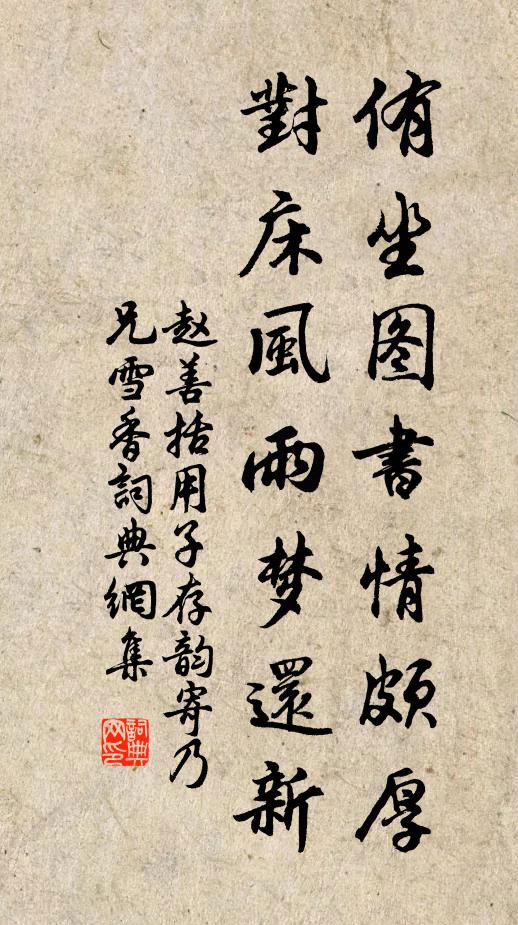 侑坐图書情頗厚
對床風雨梦還新
赵善括用子存韵寄乃
兄雪香詞典網集
詞典
网印